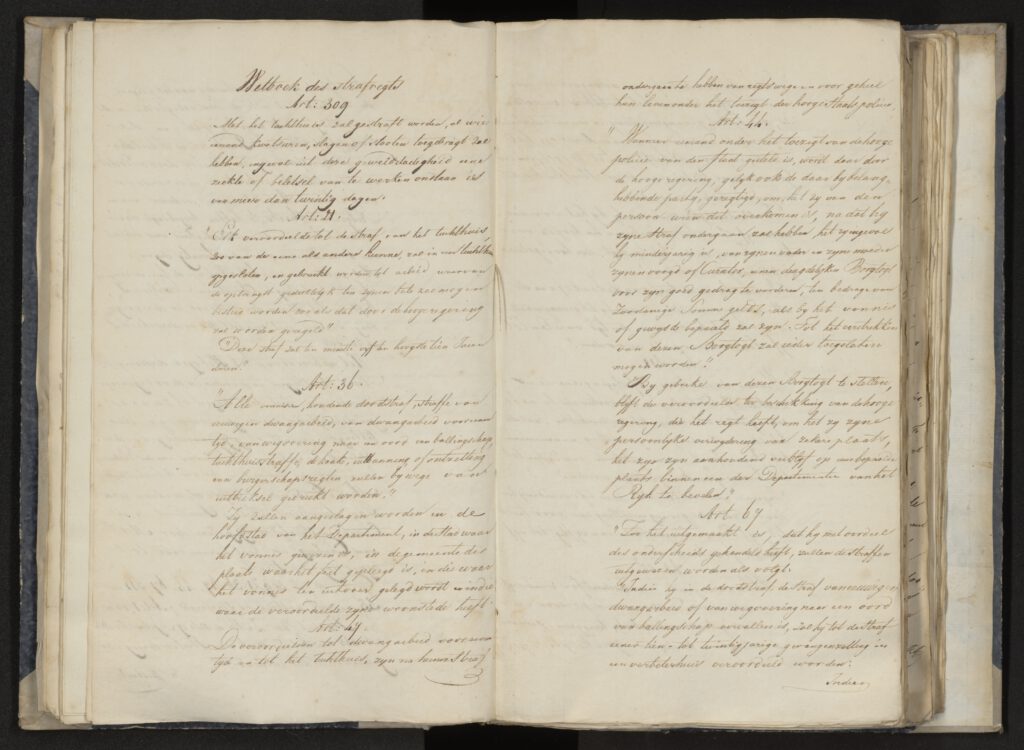 Wetboek des strafregts
Art: 309
Met het tuchthuis zal gestraft worden, al wie
iemand kwetsuren, slagen of stooten toegebragt zal
hebben, ingeval uit deze gewelddadigheid eene
ziekte of beletsel van te werken ontstaan is
van meer dan twintig dagen.
Art: 21.
Elk veroordeelde tot de straf van het tuchthuis
zoo van de eene als andere kunne, zal in een tuchthuis
opgesloten, en gebruikt worden tot arbeid waarvan
de opbrengst gedeeltelijk ten zynen bate zoo mogen
besteed worden zoo als dat door de hooge regering
zal worden geregeld"
"Deze straf zal ten minste vyf ten hoogste tien Jaren
duren."
Art: 36.
"Alle vonnissen, houdende doodstraf, straffe van
eeuwigen dwangarbeid, van dwangarbeid voor eenen
tyd, van wegvoering naar een oord van ballingschap
tuchthuisstraffe, de kaak, uitbanning of ontzetting
van burgerschapsregten zullen by wege van
uittreksel gedrukt worden."
Zy zullen aangeslagen worden in de
hoofdstad van het Departement, in de stad waar
het vonnis gewezen is, in de gemeente der
plaats waar het feit gepleegd is, in die waar
het vonnis ten uitvoer gelegd wordt en in die
waar de veroordeelde zyne woonstede heeft.
Art: 47.
De veroordeelden tot dwangarbeid voor eenen
tyd en tot het tuchthuis, zyn na hunne straf
ondergaan te hebben van regtswege en voor geheel
hun leven onder het toezigt der hooge Staats policie
Art: 44.
"Wanneer iemand onder het toezigt van de hooge
policie van den staat gesteld is, wordt daar door
de hooge regering, gelyk ook de daar by belang-
hebbende party, geregtigd, om, het zy van den
persoon wien dit overkomen is, na dat hy
zyne straf ondergaan zal hebben, het zy ingeval
hy minderjarig is, van zynen vader en zyne moeder
zynen voogd of Curator, eenen deugdelyken Borgtogt
voor zyn goed gedrag te vorderen, ten bedrage van
zoodanige somme gelds, als by het vonnis
of gewysde bepaald zal zyn. Tot het verstrekken
van dezen Borgtogt zal ieder toegelaten
mogen worden".
By gebreke van dezen Borgtogt te stellen,
blyft de veroordeelde ter beschikking van de hooge
regering, die het regt heeft, om het zy zyne
persoonlyke verwydering van zekere plaats,
het zyn zyn aanhoudend verblyf op een bepaalde
plaats binnen een der Departementen van het
Ryk te bevelen."
Art: 67
"Zoo het uitgemaakt is, dat hy met oordeel
des onderscheids gehandeld heeft, zullen de straffen
uitgewezen worden als volgt.
"Indien hy in de doodstraf de straf van eeuwigen
dwangarbeid of van wegvoering naar een oord
van ballingschap vervallen is, zal hy tot de straf
eener tien- tot twintigjarige gevangenzetting in
een verbeterhuis veroordeeld worden.
Indien